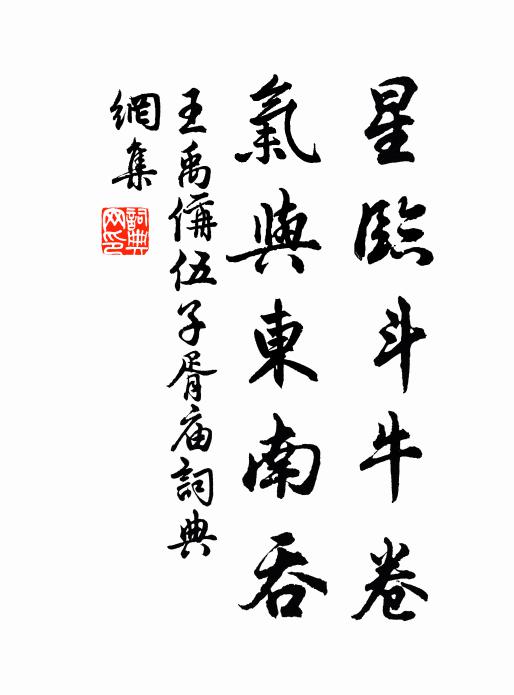 星臨斗牛卷
氣與東南吞
王禹偁伍子胥庙詞典
網集
詞典
网印